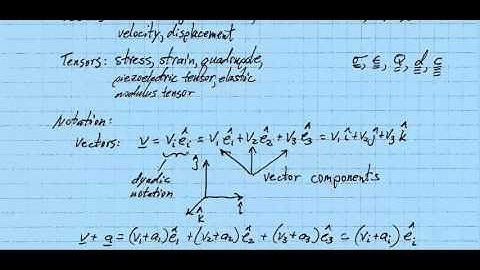 velocity, displacement
Tensors: stress, strain, quadrupole, σ, ε, Q, d, c
piezoelectric tensor, elastic
modulus tensor
Notation:
vectors: v = vᵢêᵢ = v₁ê₁ + v₂ê₂ + v₃ê₃ = v₁î + v₂ĵ + v₃k̂
dyadic
notation
ĵ
î
k̂
vector components
v + a = (v₁+a₁)ê₁ + (v₂+a₂)ê₂ + (v₃+a₃)ê₃ = (vᵢ+aᵢ)êᵢ